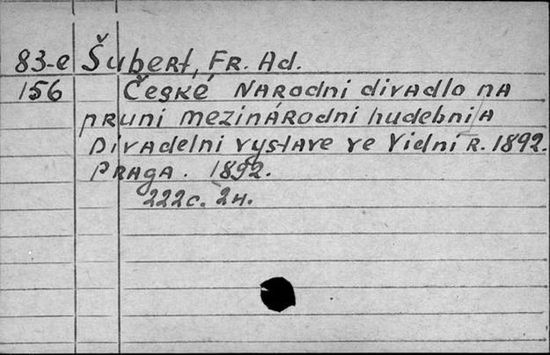 83-e Šubert, Fr. Ad.
156 České Narodni divadlo na
pruni mezinárodní hudebni/a
Divadelni vystave ve Vidni R. 1892.
Praga. 1892.
222c. 2н.